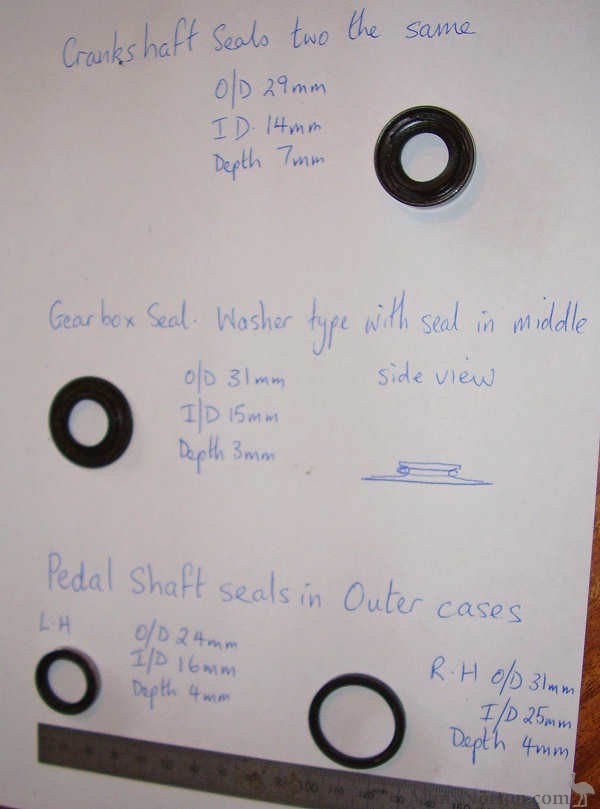 Crankshaft Seals two the same
O/D 29mm
I D. 14mm
Depth 7mm
Gearbox Seal. Washer type with seal in middle
O/D 31mm
I/D 15mm
Depth 3mm
side view
Pedal Shaft seals in Outer cases
L.H
O/D 24mm
I/D 16mm
Depth 4mm
R.H O/D 31mm
I/D 25mm
Depth 4mm
100